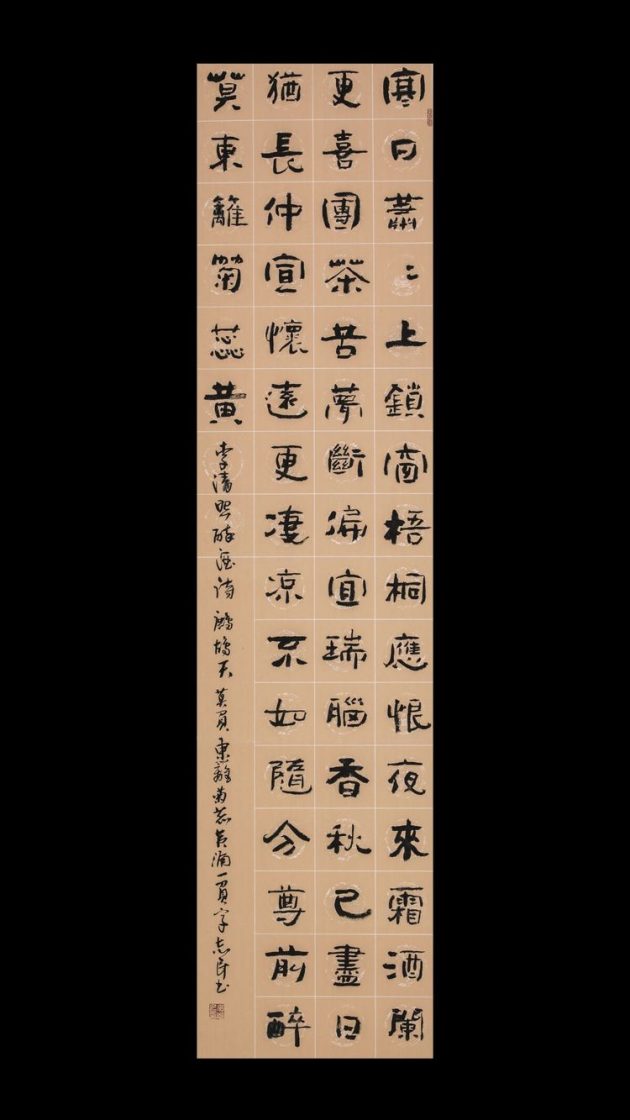 寒日蕭〻上鎖窗梧桐應恨夜來霜酒闌
更喜團茶苦夢斷偏宜瑞腦香秋已盡日
猶長仲宣懷遠更凄凉不如隨分尊前醉
莫東籬菊蕊黃
李清照醉酒詩鷓鴣天莫負東籬菊蕊黃漏一負字志民書